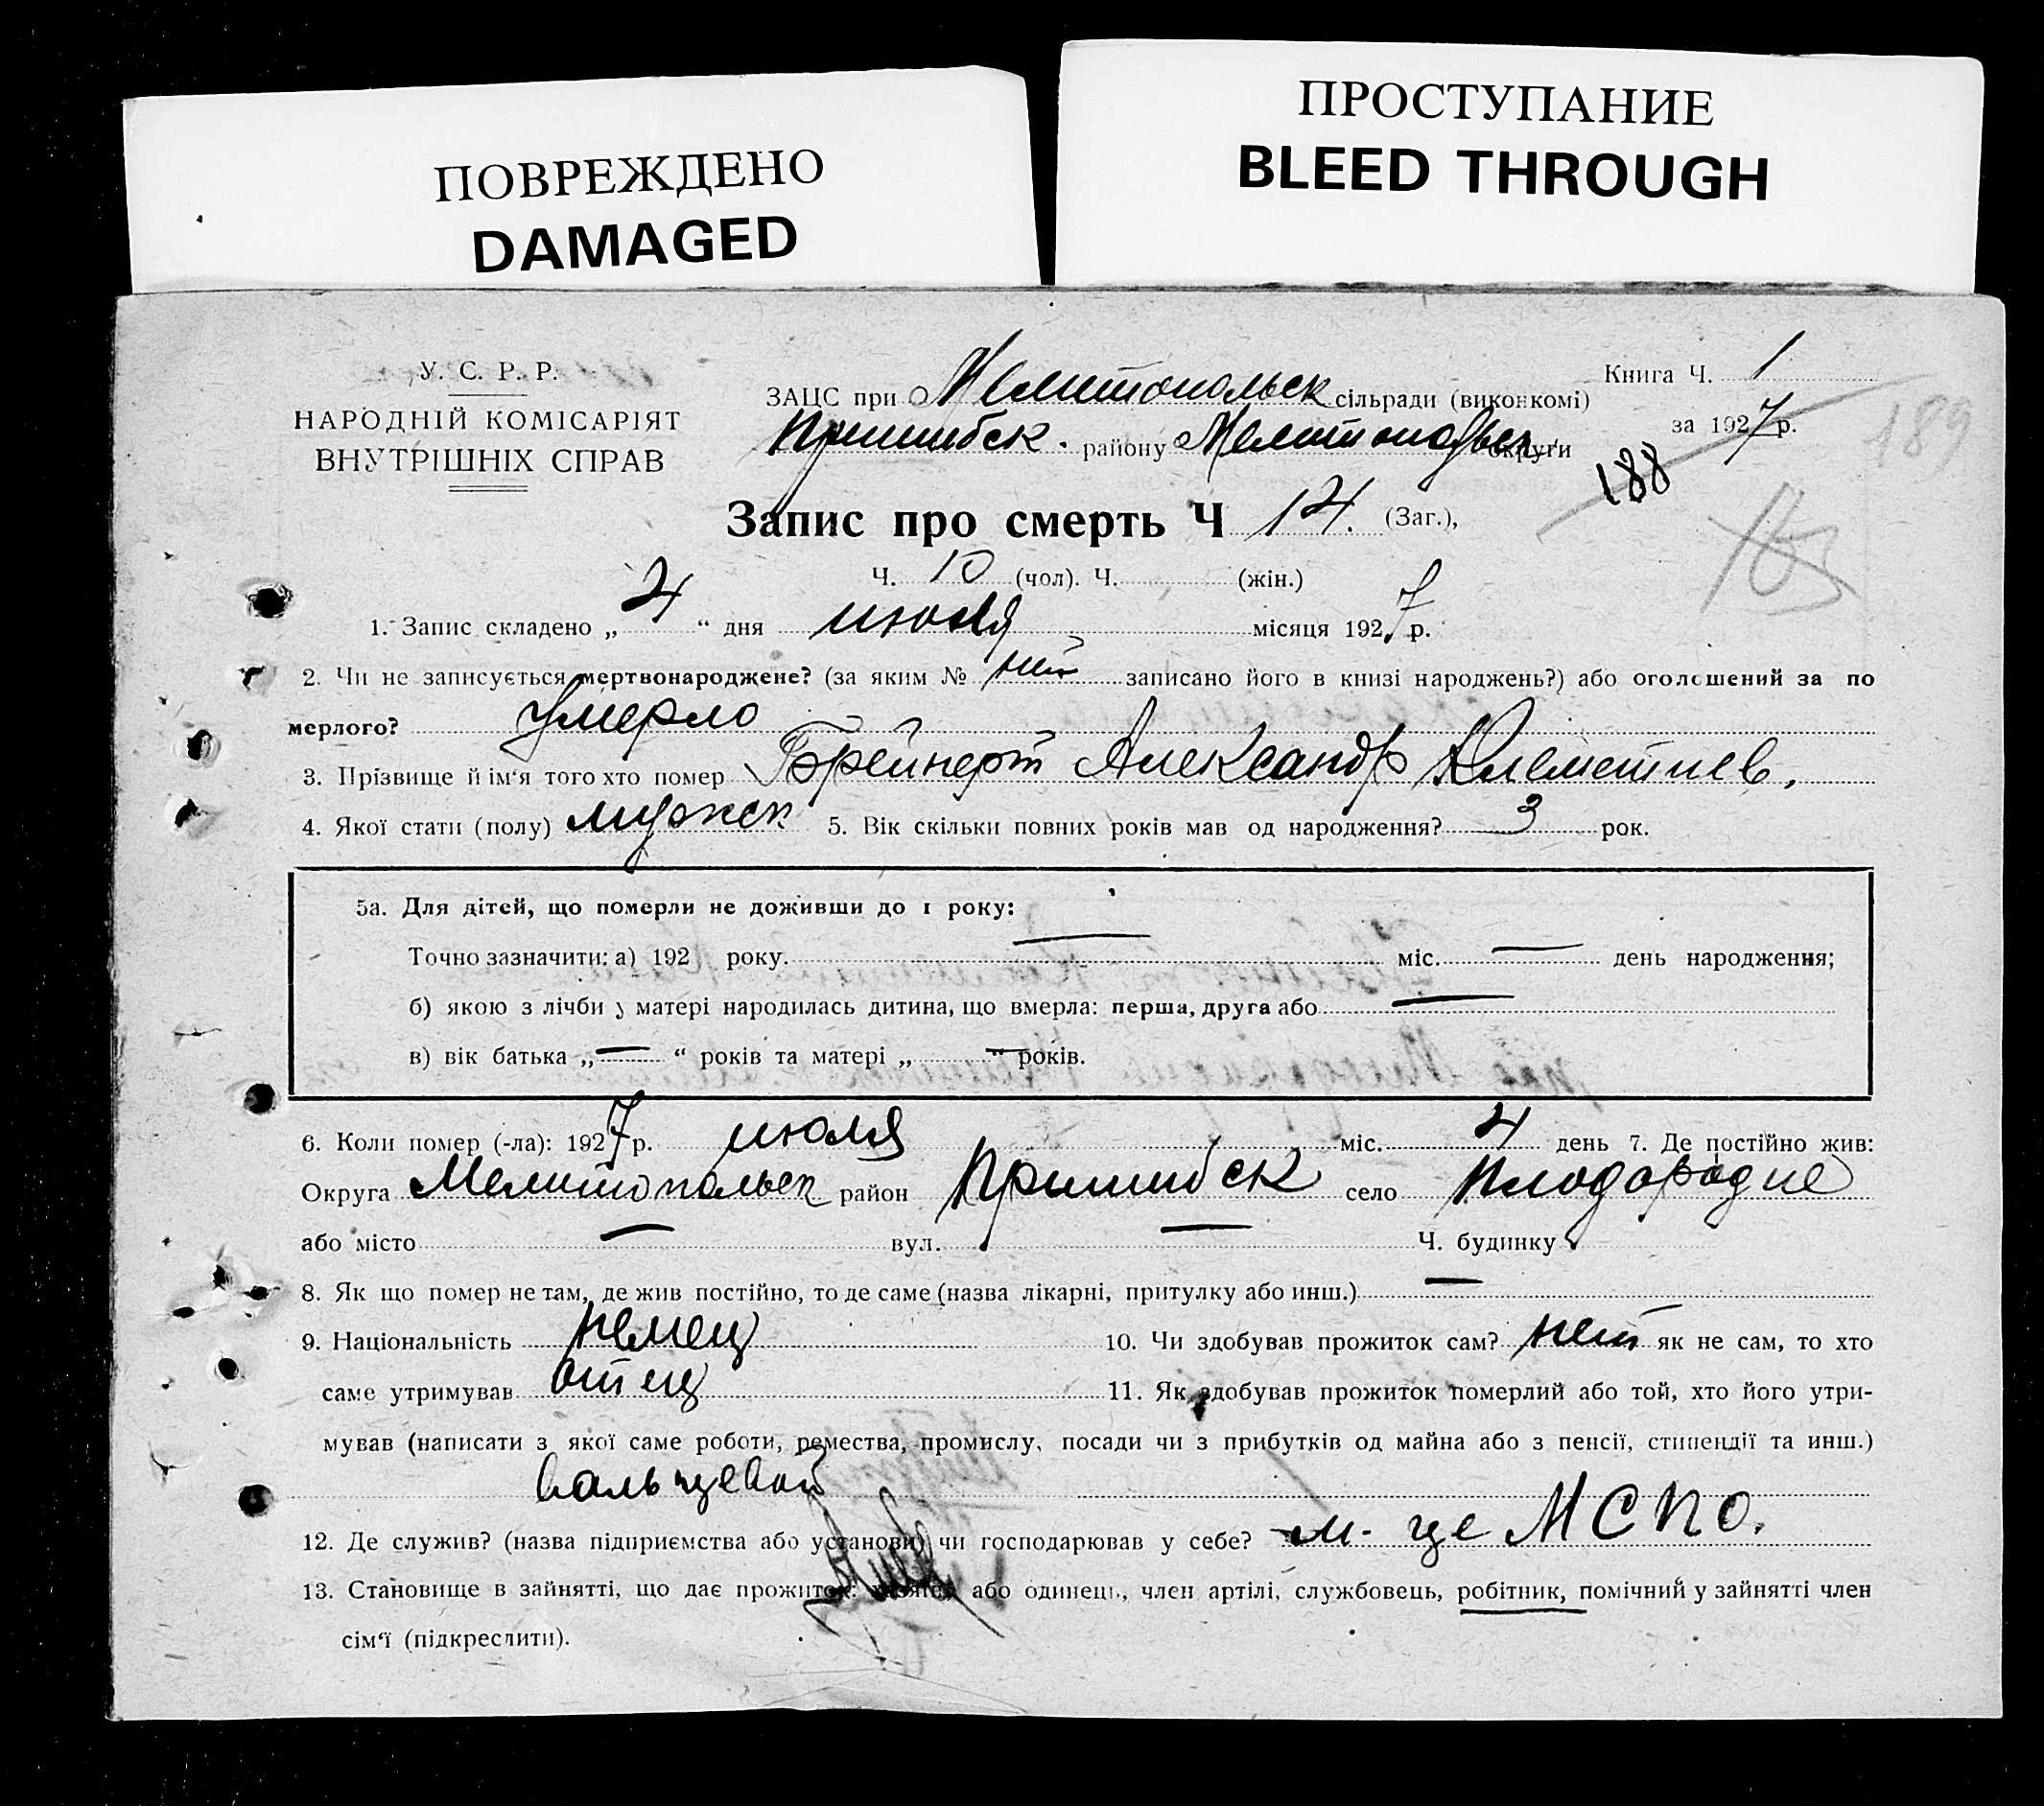 ПОВРЕЖДЕНО
DAMAGED
ПРОСТУПАНИЕ
BLEED THROUGH
У. С. Р. Р.
НАРОДНІЙ КОМІСАРІЯТ
ВНУТРІШНІХ СПРАВ
ЗАЦС при Мелитопольск сільради (виконкомі)
Пришибск. району Мелитопольск округи
Книга Ч. 1
за 1927 р.
188
189
Запис про смерть Ч 14. (Заг.),
Ч. 10 (чол). Ч. (жін.)
1. Запис складено „ 4 “ дня июля місяця 1927 р.
2. Чи не записується мертвонароджене? (за яким № нет записано його в книзі народжень?) або оголошений за по
мерлого? умерло
3. Прізвище й ім'я того хто помер Брейнерт Александр Клеметиев.
4. Якої стати (полу) мужск 5. Вік скільки повних років мав од народження? 3 рок.
5а. Для дітей, що померли не доживши до 1 року:
Точно зазначити: а) 192 року. — міс. — день народження;
б) якою з лічби у матері народилась дитина, що вмерла: перша, друга або —
в) вік батька „ — “ років та матері „ — “ років.
6. Коли помер (-ла): 1927 р. июля міс. 4 день 7. Де постійно жив:
Округа Мелитопольск район Пришибск село Плодородне
або місто — вул. — Ч. будинку
8. Як що помер не там, де жив постійно, то де саме (назва лікарні, притулку або инш.) —
9. Національність немец 10. Чи здобував прожиток сам? нет як не сам, то хто
саме утримував отец 11. Як здобував прожиток померлий або той, хто його утри-
мував (написати з якої саме роботи, ремества, промислу, посади чи з прибутків од майна або з пенсії, стипендії та инш.)
вальцевой
12. Де служив? (назва підприємства або установи) чи господарював у себе? м-це МСПО.
13. Становище в зайнятті, що дає прожиток: або одинець, член артілі, службовець, робітник, помічний у зайнятті член
сім'ї (підкреслити).